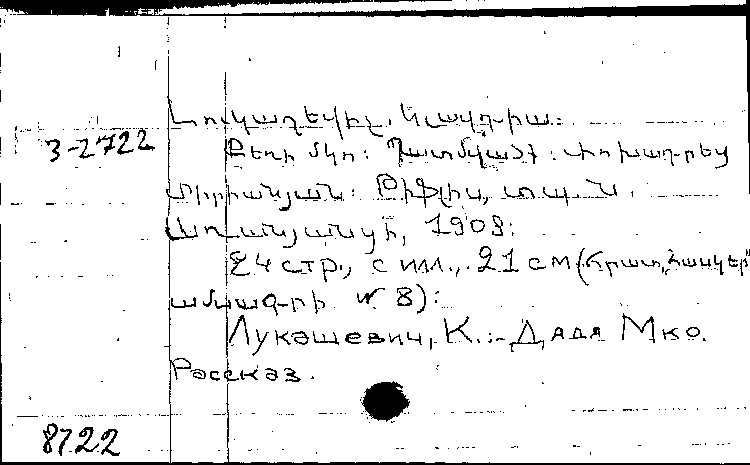 Լուկաշեվիչ, Կլավդիա:
3-2722
Քեռի Մկո: Պատմվածք: Փոխադրեց
Միրիանյան: Թիֆլիս, տպ. Ն.
Աղանյանցի, 1908:
24 стр., с илл., 21 см (Հրատ. „Հասկեր"
ամսագրի № 8):
Лукашевич, К.:- Дядя Мко.
Рассказ.
8722